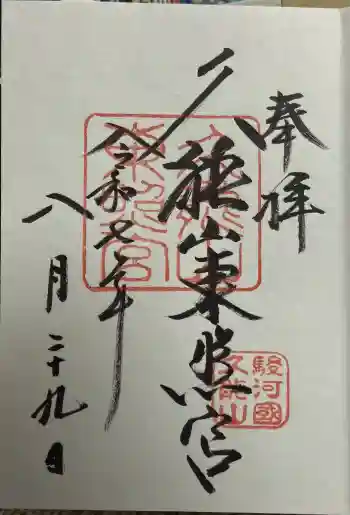 奉拝
久能山東照宮
令和七年
八月二十九日
駿河國
久能山